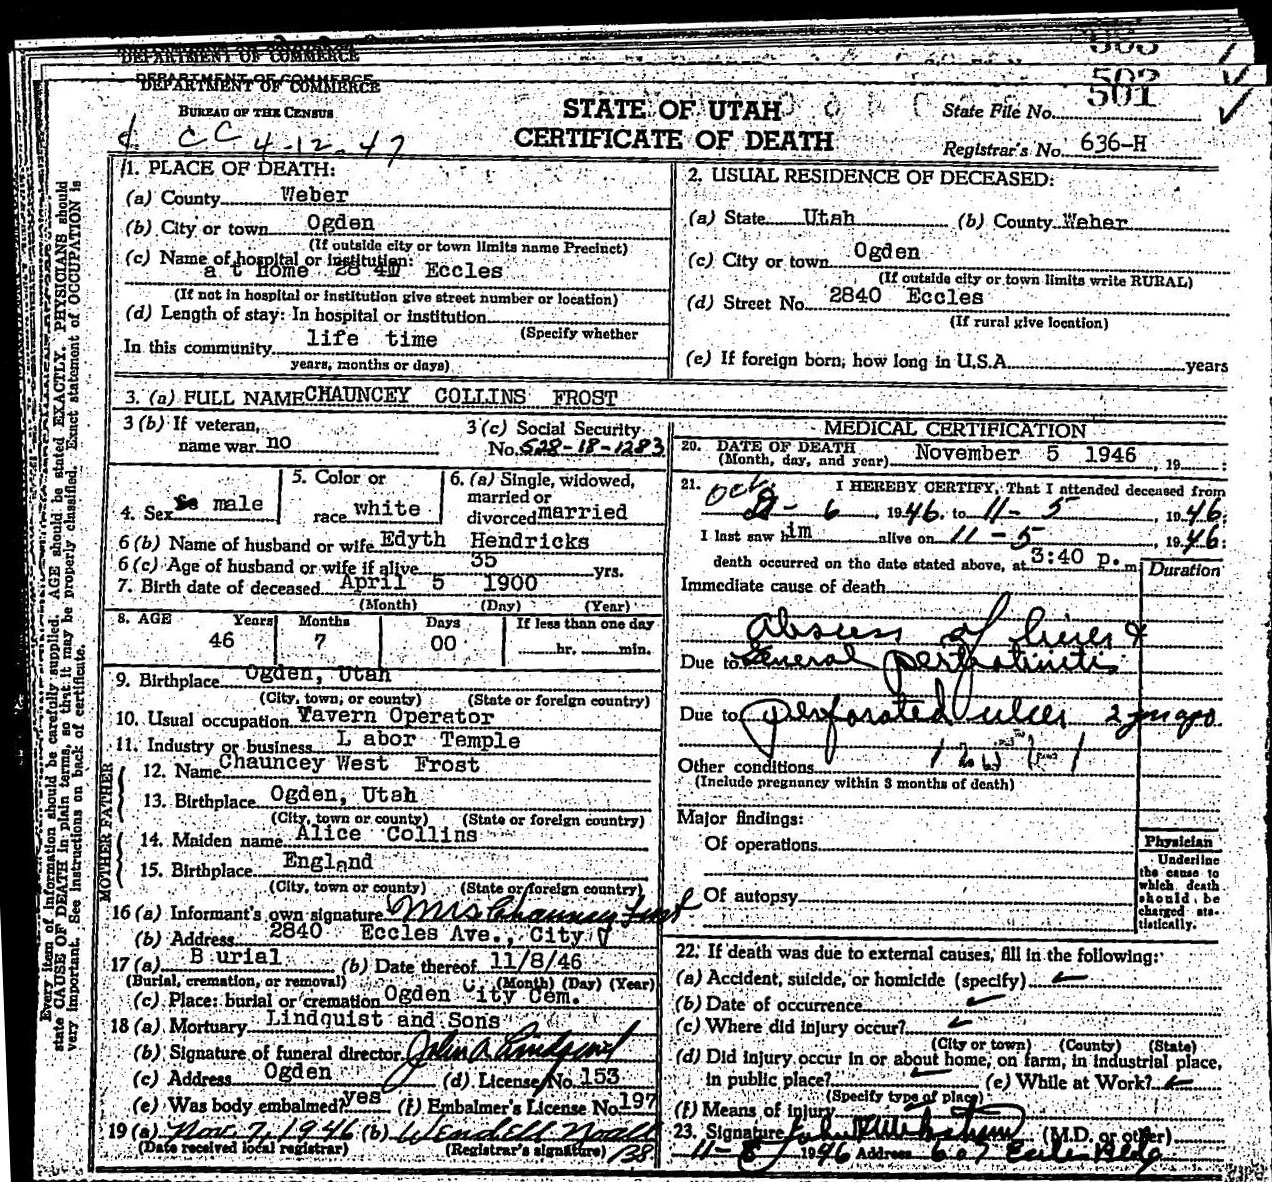 DEPARTMENT OF COMMERCE
DEPARTMENT OF COMMERCE
BUREAU OF THE CENSUS
CC 4-12-47
STATE OF UTAH
CERTIFICATE OF DEATH
503
502
501
State File No.
Registrar's No. 636-H
Every item of information should be carefully supplied. AGE should be stated EXACTLY. PHYSICIANS should
state CAUSE OF DEATH in plain terms, so that it may be properly classified. Exact statement of OCCUPATION is
very important. See instructions on back of certificate.
1. PLACE OF DEATH:
(a) County Weber
(b) City or town Ogden
(If outside city or town limits name Precinct)
(c) Name of hospital or institution:
at Home 2840 Eccles
(If not in hospital or institution give street number or location)
(d) Length of stay: In hospital or institution
(Specify whether
In this community life time
years, months or days)
2. USUAL RESIDENCE OF DECEASED:
(a) State Utah (b) County Weber
(c) City or town Ogden
(If outside city or town limits write RURAL)
(d) Street No. 2840 Eccles
(If rural give location)
(e) If foreign born, how long in U.S.A. years
3. (a) FULL NAME CHAUNCEY COLLINS FROST
3 (b) If veteran,
name war no
3 (c) Social Security
No. 528-18-1283
4. Sex male
5. Color or
race white
6. (a) Single, widowed,
married or
divorced married
6 (b) Name of husband or wife Edyth Hendricks
6 (c) Age of husband or wife if alive 35 yrs.
7. Birth date of deceased April 5 1900
(Month) (Day) (Year)
8. AGE Years Months Days If less than one day
46 7 00 hr. min.
9. Birthplace Ogden, Utah
(City, town, or county) (State or foreign country)
10. Usual occupation Tavern Operator
11. Industry or business Labor Temple
FATHER
12. Name Chauncey West Frost
13. Birthplace Ogden, Utah
(City, town or county) (State or foreign country)
MOTHER
14. Maiden name Alice Collins
15. Birthplace England
(City, town or county) (State or foreign country)
16 (a) Informant's own signature Mrs Chauncey Frost
(b) Address 2840 Eccles Ave., City
17 (a) Burial (b) Date thereof 11/8/46
(Burial, cremation, or removal) (Month) (Day) (Year)
(c) Place: burial or cremation Ogden City Cem.
18 (a) Mortuary Lindquist and Sons
(b) Signature of funeral director John A Lindquist
(c) Address Ogden (d) License No. 153
(e) Was body embalmed? yes (f) Embalmer's License No. 197
19 (a) Nov. 7, 1946 (b) Wendell Noall
(Date received local registrar) (Registrar's signature) 138
MEDICAL CERTIFICATION
20. DATE OF DEATH
(Month, day, and year) November 5 1946, 19 :
21. I HEREBY CERTIFY, That I attended deceased from
Oct. - 6, 1946, to 11-5, 1946;
I last saw him alive on 11-5, 1946;
death occurred on the date stated above, at 3:40 p.m.
Duration
Immediate cause of death
Abscess of liver &
Due to General peritonitis
Due to perforated ulcer 2 yrs ago.
Other conditions
(Include pregnancy within 3 months of death)
Major findings:
Of operations
Of autopsy
Physician
Underline
the cause to
which death
should be
charged sta-
tistically.
22. If death was due to external causes, fill in the following:
(a) Accident, suicide, or homicide (specify)
(b) Date of occurrence
(c) Where did injury occur?
(City or town) (County) (State)
(d) Did injury occur in or about home, on farm, in industrial place,
in public place? (e) While at Work?
(Specify type of place)
(f) Means of injury
23. Signature (M.D. or other)
1946 Address 607 Eccles Bldg